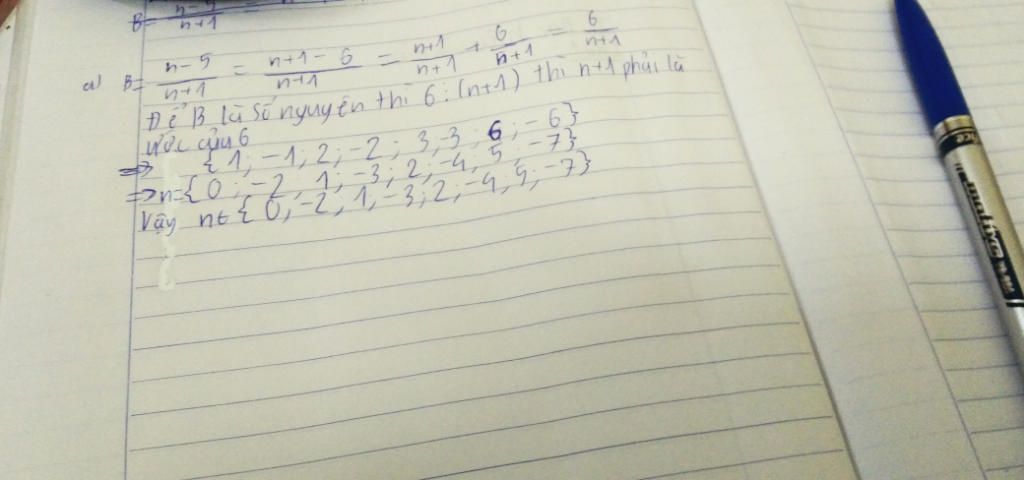 B = n-5/n+1 =
a) B = n-5/n+1 = n+1-6/n+1 = n+1/n+1 + 6/n+1 = 6/n+1
Để B là số nguyên thì 6 ⋮ (n+1) thì n+1 phải là
ước của 6
=> {1; -1; 2; -2; 3, -3; 6; -6}
=> n={0; -2, 1; -3; 2; -4, 5; -7}
Vậy n∈ {0, -2, 1, -3, 2; -4, 5; -7}